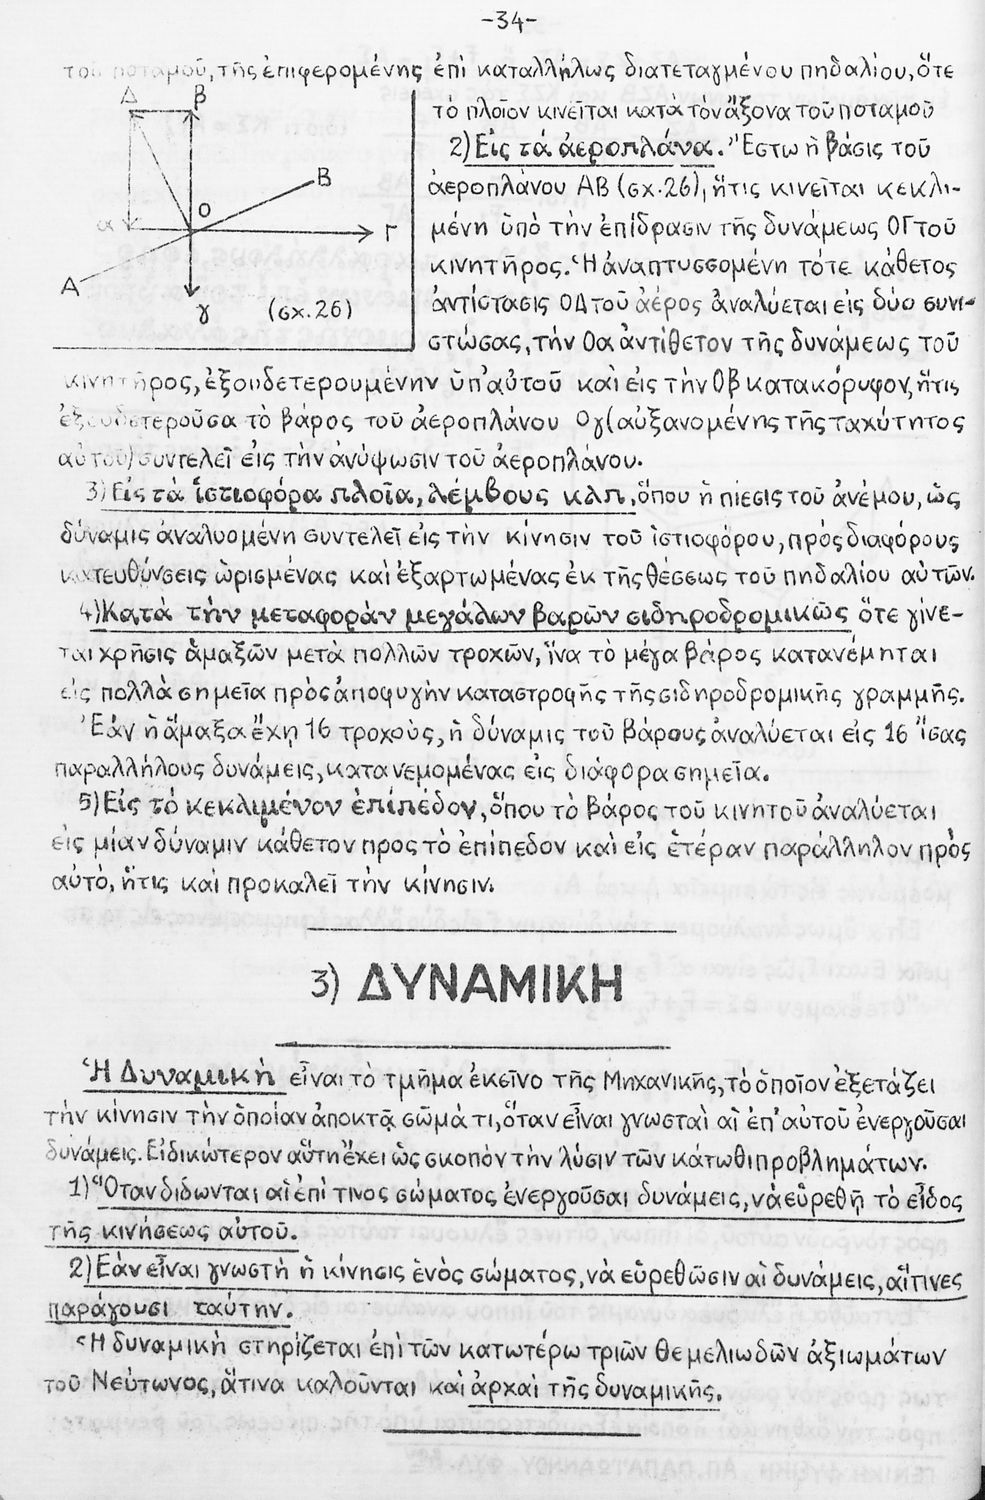 -34-
τοῦ ποταμοῦ, τῆς ἐπιφερομένης ἐπὶ καταλλήλως διατεταγμένου πηδαλίου, ὅτε
τὸ πλοῖον κινεῖται κατὰ τὸν ἄξονα τοῦ ποταμοῦ
2) Εἰς τά ἀεροπλάνα. Ἔστω ἡ βάσις τοῦ
ἀεροπλάνου ΑΒ (σχ. 26), ἥτις κινεῖται κεκλι-
μένη ὑπὸ τὴν ἐπίδρασιν τῆς δυνάμεως ΟΓ τοῦ
κινητῆρος. Ἡ ἀναπτυσσομένη τότε κάθετος
ἀντίστασις ΟΔ τοῦ ἀέρος ἀναλύεται εἰς δύο συνι-
στώσας, τὴν Οα ἀντίθετον τῆς δυνάμεως τοῦ
Δ
β
Β
Ο
α
Γ
Α
γ
(σχ. 26)
κινητῆρος, ἐξουδετερουμένην ὑπ' αὐτοῦ καὶ εἰς τὴν Οβ κατακόρυφον, ἥτις
ἐξουδετεροῦσα τὸ βάρος τοῦ ἀεροπλάνου Ογ (αὐξανομένης τῆς ταχύτητος
αὐτοῦ) συντελεῖ εἰς τὴν ἀνύψωσιν τοῦ ἀεροπλάνου.
3) Εἰς τὰ ἱστιοφόρα πλοῖα, λέμβους κλπ, ὅπου ἡ πίεσις τοῦ ἀνέμου, ὡς
δύναμις ἀναλυομένη συντελεῖ εἰς τὴν κίνησιν τοῦ ἱστιοφόρου, πρὸς διαφόρους
κατευθύνσεις ὡρισμένας καὶ ἐξαρτωμένας ἐκ τῆς θέσεως τοῦ πηδαλίου αὐτῶν.
4) Κατὰ τὴν μεταφορὰν μεγάλων βαρῶν σιδηροδρομικῶς ὅτε γίνε-
ται χρῆσις ἁμαξῶν μετὰ πολλῶν τροχῶν, ἵνα τὸ μέγα βάρος κατανέμηται
εἰς πολλὰ σημεῖα πρὸς ἀποφυγὴν καταστροφῆς τῆς σιδηροδρομικῆς γραμμῆς.
Ἐὰν ἡ ἅμαξα ἔχῃ 16 τροχοὺς, ἡ δύναμις τοῦ βάρους ἀναλύεται εἰς 16 ἴσας
παραλλήλους δυνάμεις, κατανεμομένας εἰς διάφορα σημεῖα.
5) Εἰς τὸ κεκλιμένον ἐπίπεδον, ὅπου τὸ βάρος τοῦ κινητοῦ ἀναλύεται
εἰς μίαν δύναμιν κάθετον προς τὸ ἐπίπεδον καὶ εἰς ἑτέραν παράλληλον πρὸς
αὐτὸ, ἥτις καὶ προκαλεῖ τὴν κίνησιν.
3) ΔΥΝΑΜΙΚΗ
Ἡ Δυναμικὴ εἶναι τὸ τμῆμα ἐκεῖνο τῆς Μηχανικῆς, τὸ ὁποῖον ἐξετάζει
τὴν κίνησιν τὴν ὁποίαν ἀποκτᾷ σῶμά τι, ὅταν εἶναι γνωσταὶ αἱ ἐπ' αὐτοῦ ἐνεργοῦσαι
δυνάμεις. Εἰδικώτερον αὕτη ἔχει ὡς σκοπὸν τὴν λύσιν τῶν κάτωθι προβλημάτων.
1) Ὅταν δίδωνται αἱ ἐπὶ τινος σώματος ἐνεργοῦσαι δυνάμεις, νὰ εὑρεθῇ τὸ εἶδος
τῆς κινήσεως αὐτοῦ.
2) Ἐὰν εἶναι γνωστὴ ἡ κίνησις ἑνὸς σώματος, νὰ εὑρεθῶσιν αἱ δυνάμεις, αἵτινες
παράγουσι ταύτην.
Ἡ δυναμικὴ στηρίζεται ἐπὶ τῶν κατωτέρω τριῶν θεμελιωδῶν ἀξιωμάτων
τοῦ Νεύτωνος, ἅτινα καλοῦνται καὶ ἀρχαὶ τῆς δυναμικῆς.